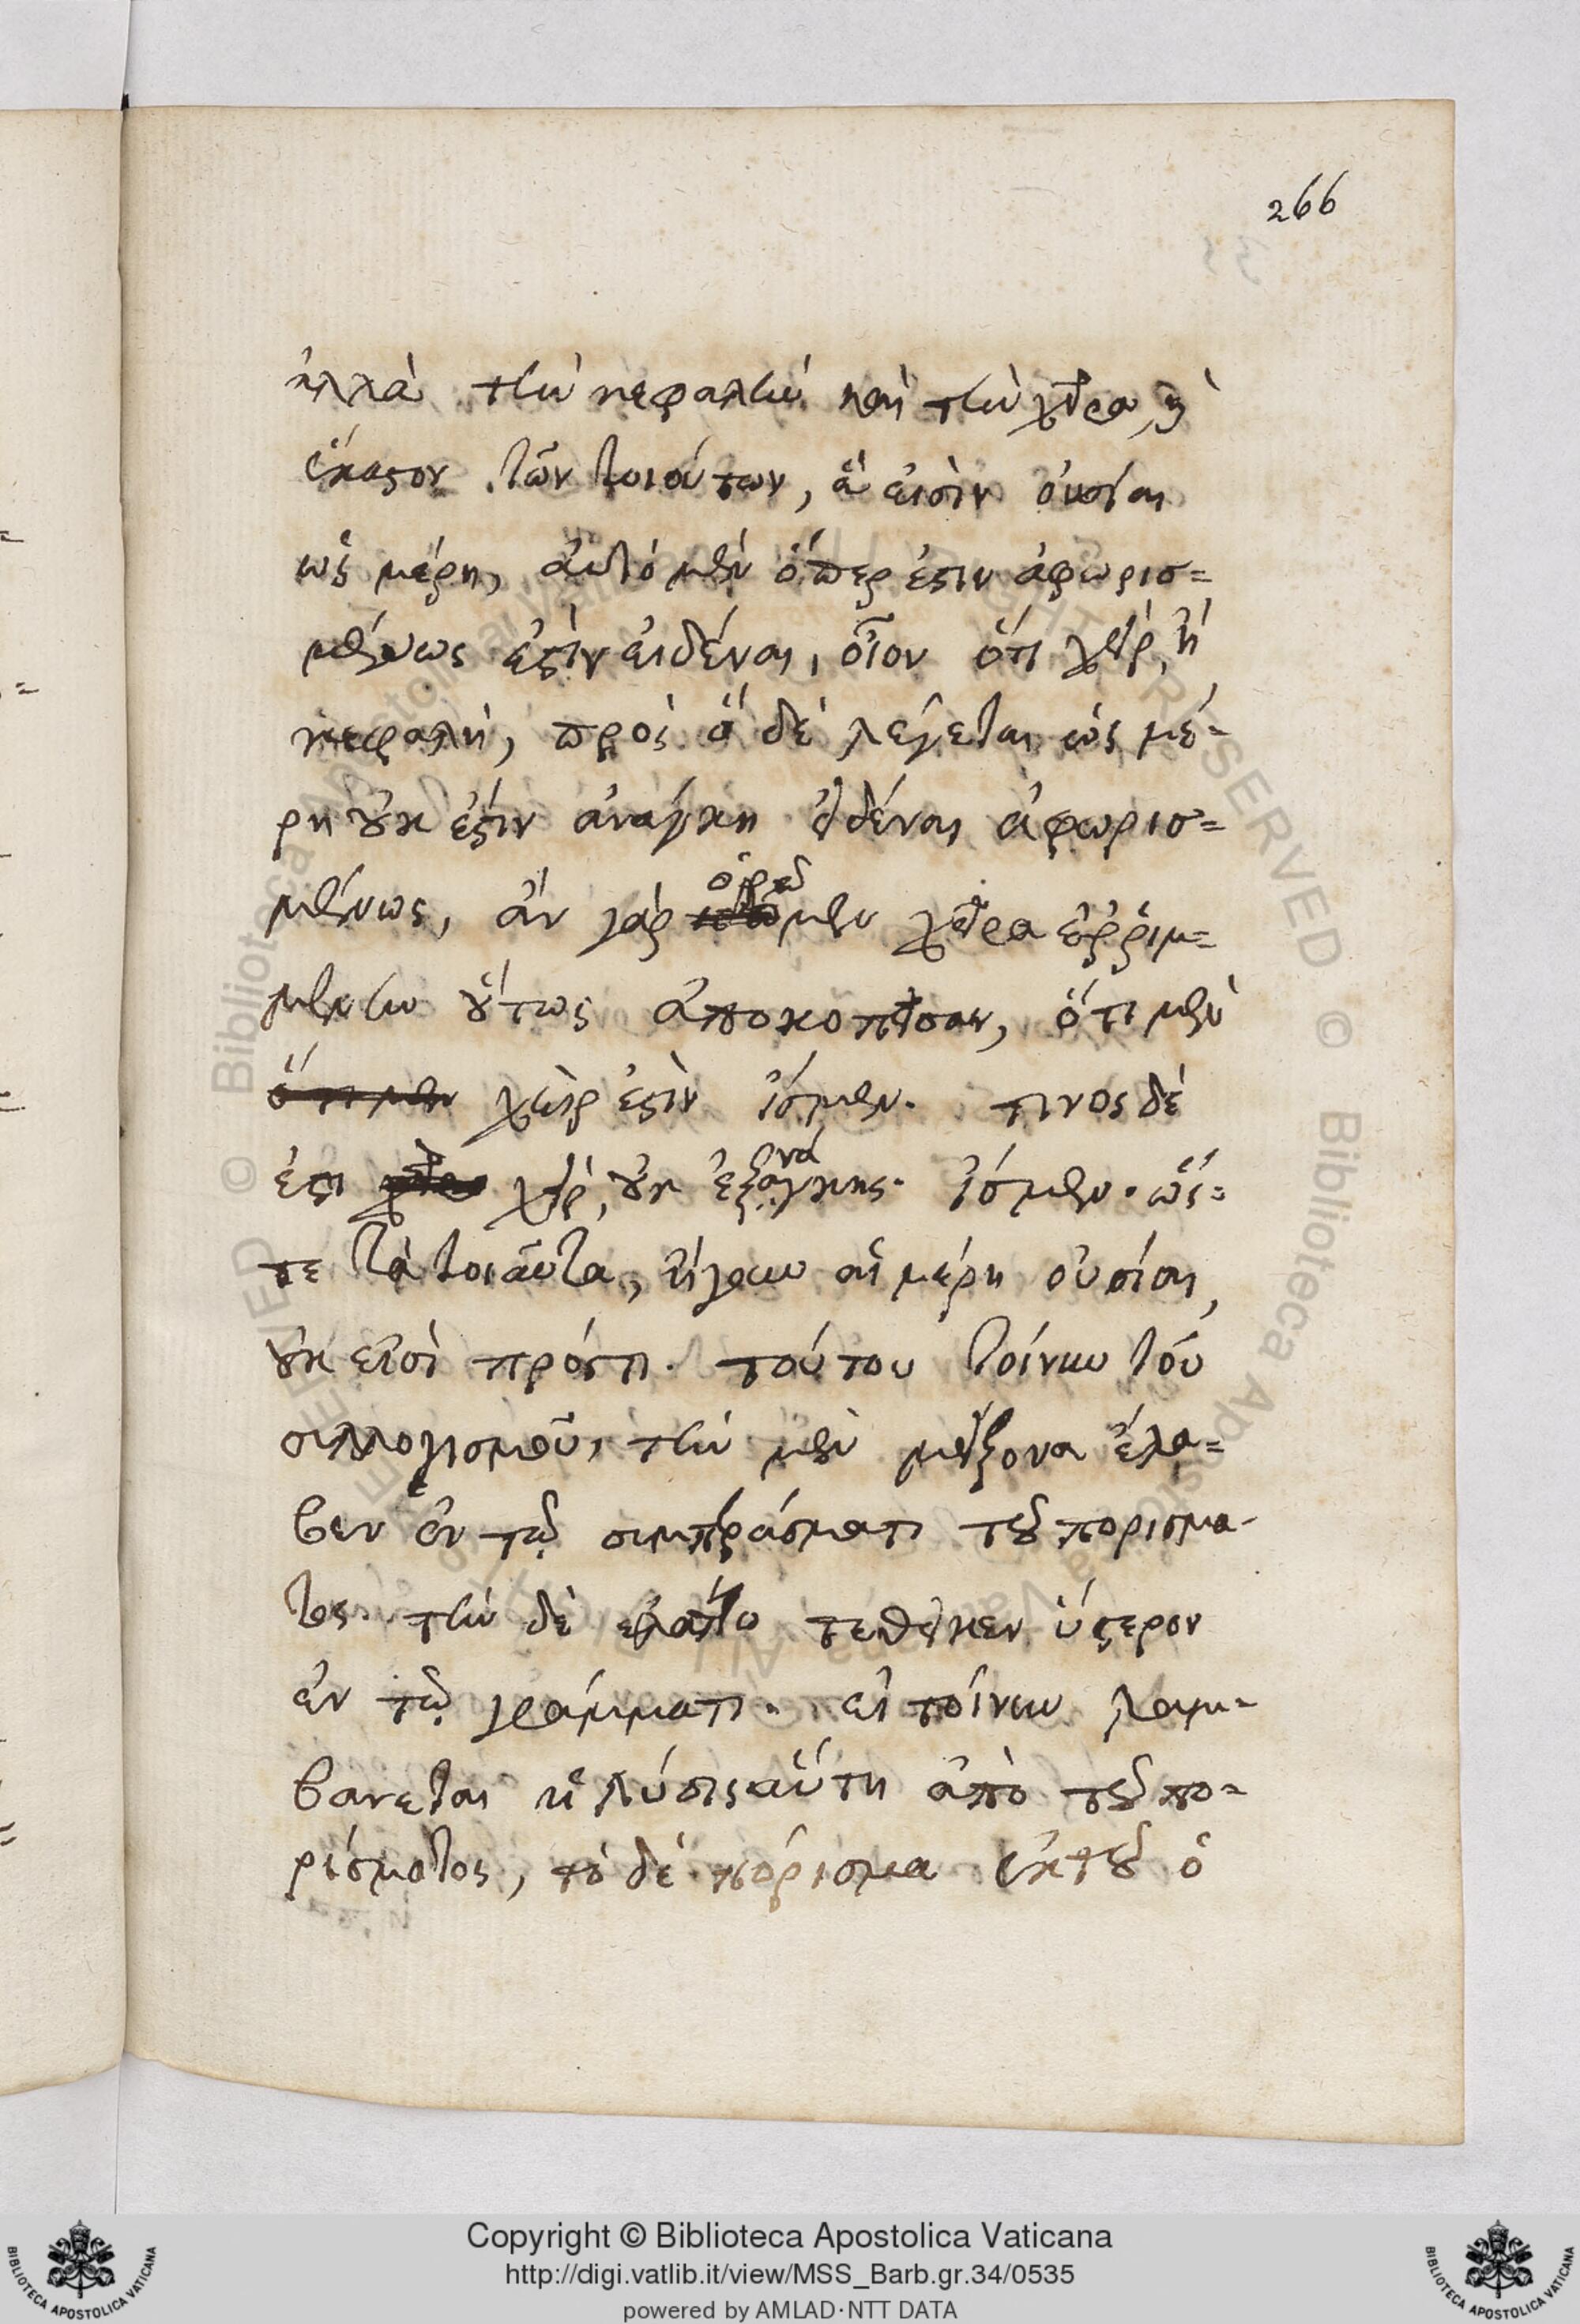 266
ἀλλὰ τὴν κεφαλὴν καὶ τὴν χεῖρα, καὶ
ἕκαστον τῶν τοιούτων, ἅ εἰσὶν οὐσίαι
ὡς μέρη, αὐτὸ μὲν ὅπερ ἐστιν ἀφωρισ=
μένως ἐστὶν εἰδέναι, οἷον ὅτι χεὶρ, ἢ
κεφαλὴ, πρὸς ὃ δὲ λέγεται ὡς μέ=
ρη οὐκ ἐστιν ἀνάγκη εἰδέναι ἀφωρισ=
μένως, ἂν γὰρ ὁρῶμεν χεῖρα ἐῤῥιμ=
μένην οὕτως ἀποκοπεῖσαν, ὅτι μὲν
ὅτι μὲν χεὶρ ἐστὶν ἴσμεν. τινος δέ
ἐστι χεὶρ, οὐκ ἐξανάγκης ἴσμεν. ὥς=
τε τὰ τοιαῦτα, ἤγουν αἱ μέρη οὐσίαι,
οὐκ εἰσὶ πρός τι. τούτου τοίνυν τοῦ
συλλογισμοῦ, τὴν μὲν μείζονα ἔλα=
βεν ἐν τῷ συμπεράσματι τοῦ πορισμα-
τος. τὴν δὲ ἐλάττω τέθεικεν ὕστερον
ἐν τῷ γράμματι. εἰ τοίνυν λαμ=
βανεται ἡ λύσις αὕτη ἀπὸ τοῦ πο=
ρίσματος, τὸ δὲ πόρισμα ἐκ τοῦ ὁ
Copyright © Biblioteca Apostolica Vaticana
http://digi.vatlib.it/view/MSS_Barb.gr.34/0535
powered by AMLAD·NTT DATA